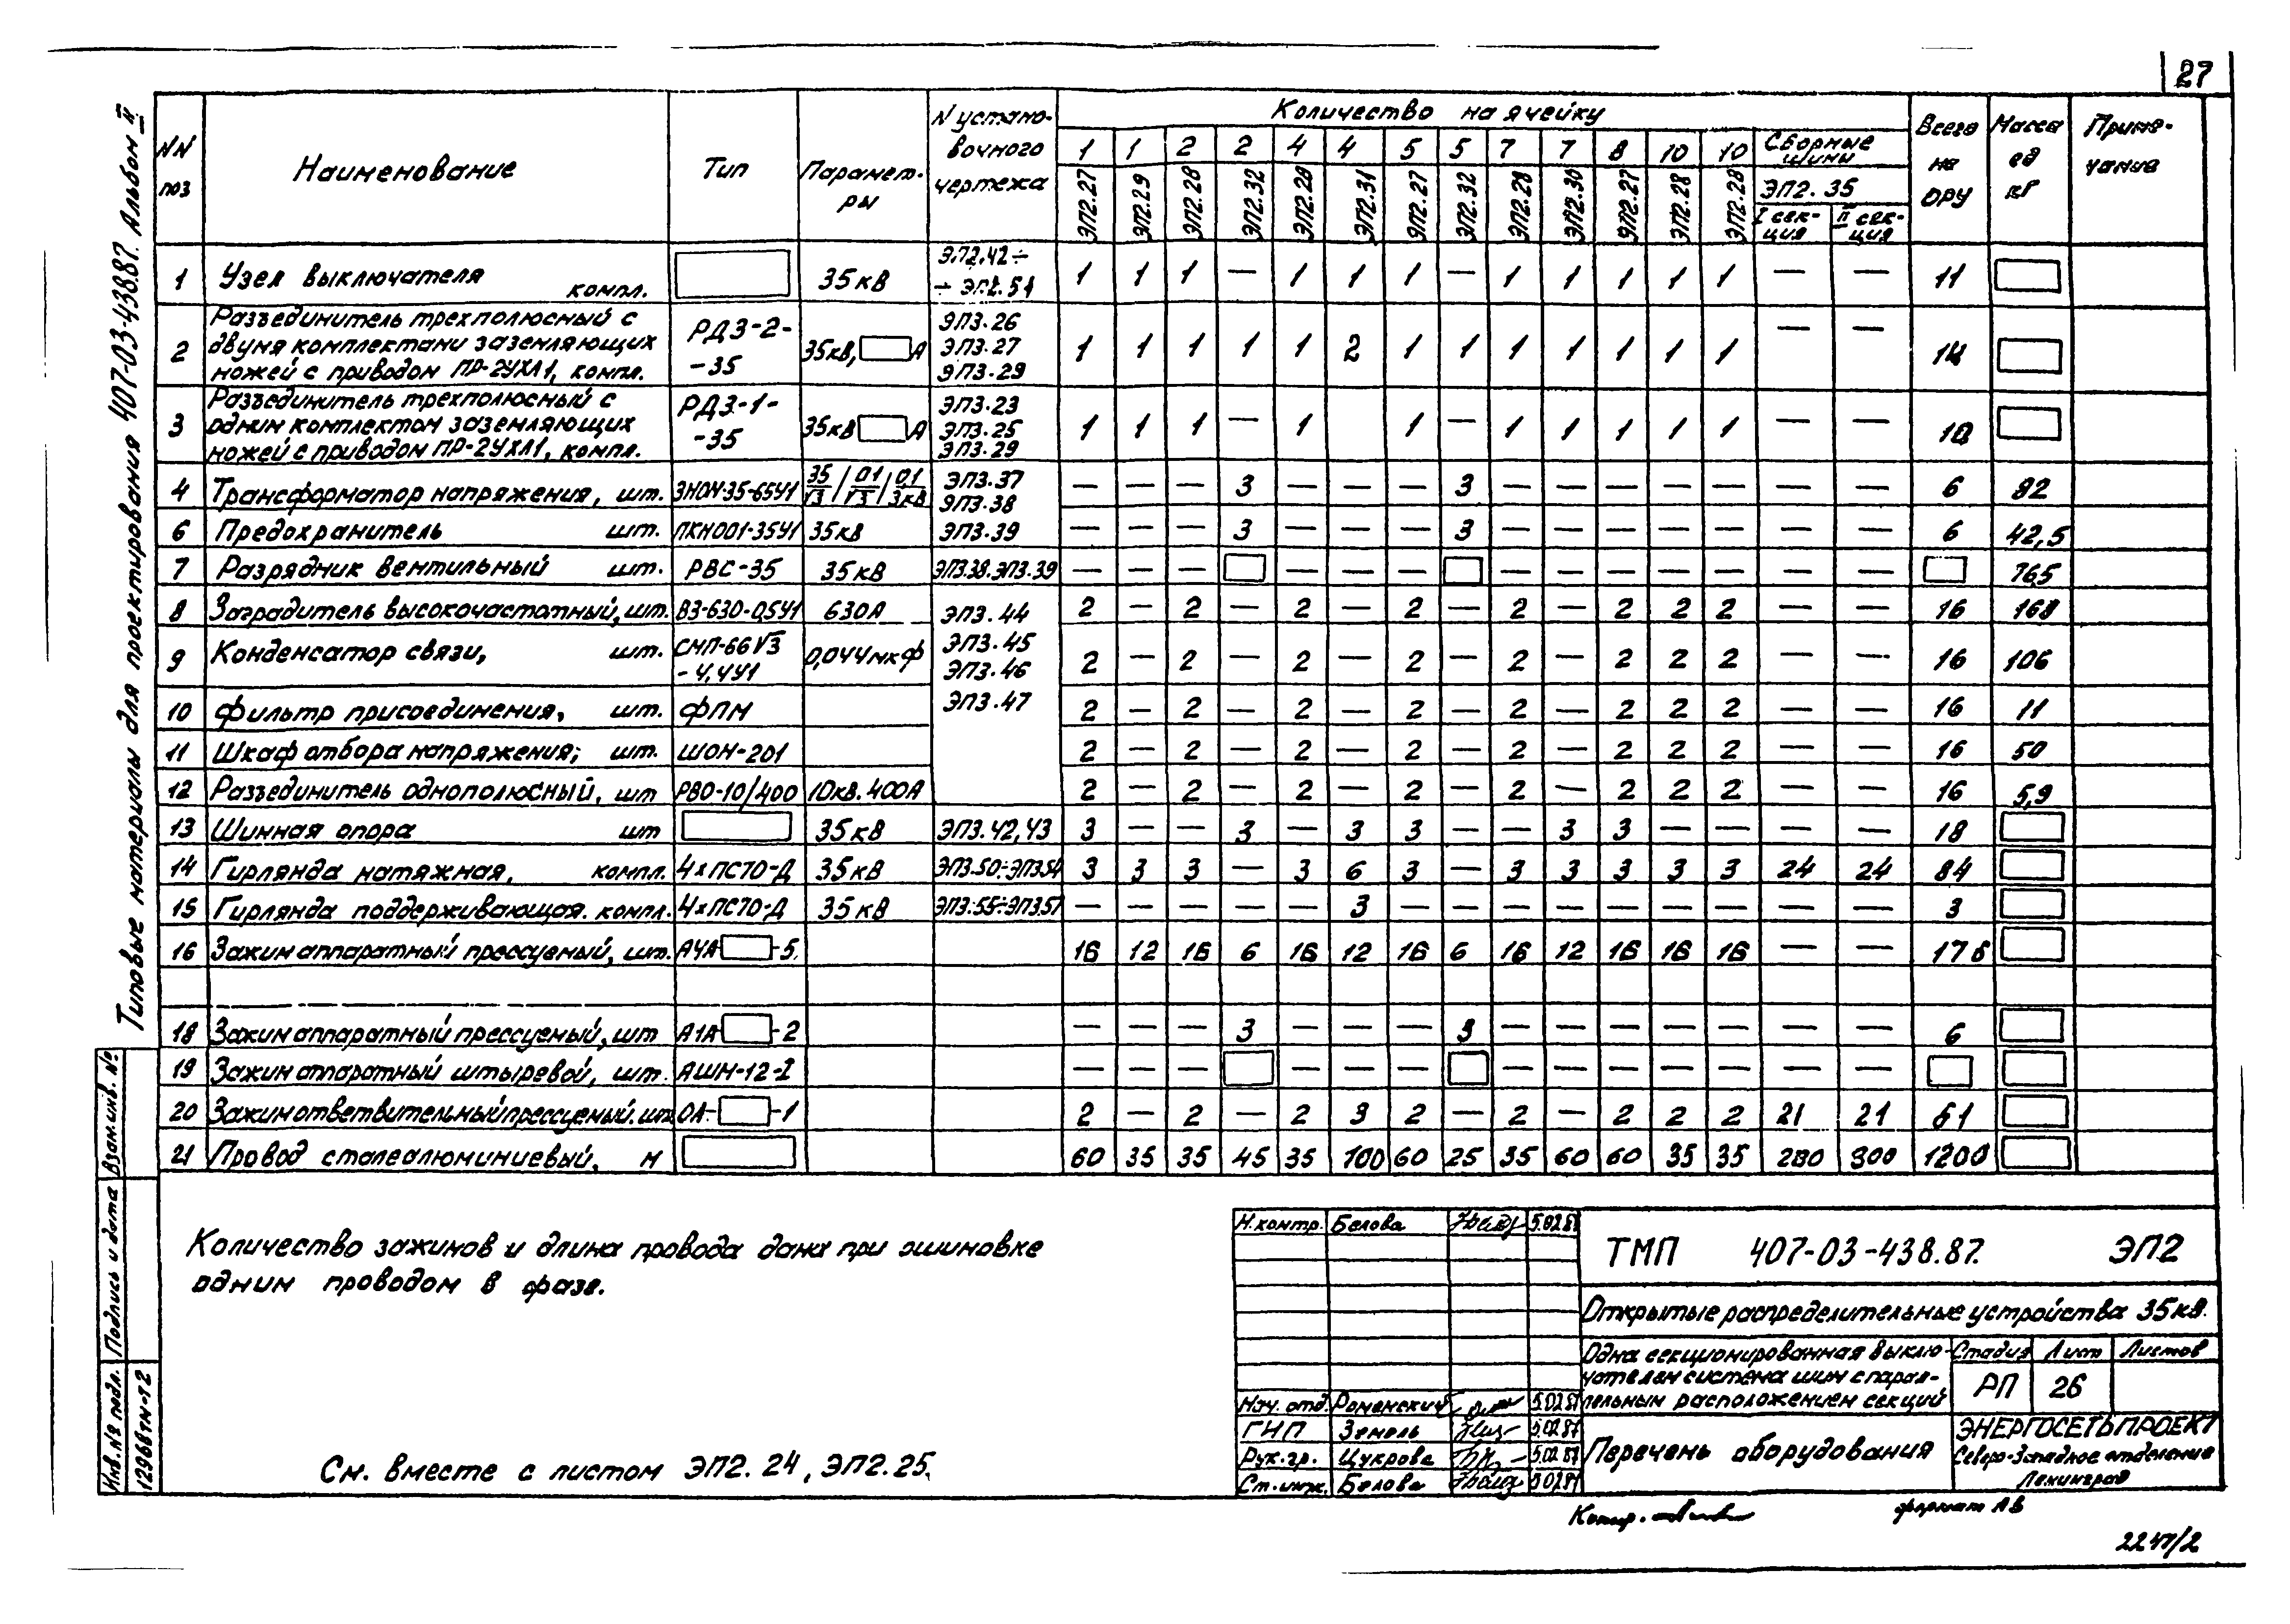 27
Типовые материалы для проектирования 407-03-438.87. Альбом II
NN поз | Наименование | Тип | Парамет-ры | N устано-вочного чертежа | Количество на ячейку | Всего на ОРУ | Масса ед кг | Приме-чание
1 | 1 | 2 | 2 | 4 | 4 | 5 | 5 | 7 | 7 | 8 | 10 | 10 | Сборные шины
ЭП2.27 | ЭП2.29 | ЭП2.28 | ЭП2.32 | ЭП2.28 | ЭП2.31 | ЭП2.27 | ЭП2.32 | ЭП2.28 | ЭП2.30 | ЭП2.27 | ЭП2.28 | ЭП2.28 | ЭП2.35
I сек-ция | II сек-ция
1 | Узел выключателя компл. | 35кВ | ЭП2.42÷ ÷ЭП2.54 | 1 | 1 | 1 | — | 1 | 1 | 1 | — | 1 | 1 | 1 | 1 | 1 | — | — | 11
2 | Разъединитель трехполюсный с двумя комплектами заземляющих ножей с приводом ПР-2УХЛ1, компл. | РДЗ-2--35 | 35кВ, А | ЭП3.26 ЭП3.27 ЭП3.29 | 1 | 1 | 1 | 1 | 1 | 2 | 1 | 1 | 1 | 1 | 1 | 1 | 1 | — | — | 14
3 | Разъединитель трехполюсный с одним комплектом заземляющих ножей с приводом ПР-2УХЛ1, компл. | РДЗ-1--35 | 35кВ А | ЭП3.23 ЭП3.25 ЭП3.29 | 1 | 1 | 1 | — | 1 | 1 | — | 1 | 1 | 1 | 1 | 1 | — | — | 10
4 | Трансформатор напряжения, шт. | ЗНОМ-35-65У1 | 35/√3 / 0.1/√3 / 0,1/3 кВ | ЭП3.37 ЭП3.38 | — | — | — | 3 | — | — | — | 3 | — | — | — | — | — | — | — | 6 | 92
6 | Предохранитель шт. | ПКН001-35У1 | 35кВ | ЭП3.39 | — | — | — | 3 | — | — | — | 3 | — | — | — | — | — | — | — | 6 | 42,5
7 | Разрядник вентильный шт. | РВС-35 | 35кВ | ЭП3.38.ЭП3.39 | — | — | — | — | — | — | — | — | — | — | — | — | — | 76,5
8 | Заградитель высокочастотный, шт. | ВЗ-630-0,5У1 | 630А | ЭП3.44 | 2 | — | 2 | — | 2 | — | 2 | — | 2 | — | 2 | 2 | 2 | — | — | 16 | 168
9 | Конденсатор связи, шт. | СМП-66√3 -4,4У1 | 0,044мкф | ЭП3.45 ЭП3.46 | 2 | — | 2 | — | 2 | — | 2 | — | 2 | — | 2 | 2 | 2 | — | — | 16 | 106
10 | Фильтр присоединения, шт. | ФПМ | ЭП3.47 | 2 | — | 2 | — | 2 | — | 2 | — | 2 | — | 2 | 2 | 2 | — | — | 16 | 11
11 | Шкаф отбора напряжения; шт. | ШОН-201 | 2 | — | 2 | — | 2 | — | 2 | — | 2 | — | 2 | 2 | 2 | — | — | 16 | 50
12 | Разъединитель однополюсный, шт | РВО-10/400 | 10кВ.400А | 2 | — | 2 | — | 2 | — | 2 | — | 2 | — | 2 | 2 | 2 | — | — | 16 | 5,9
13 | Шинная опора шт | 35кВ | ЭП3.42,43 | 3 | — | — | 3 | — | 3 | 3 | — | — | 3 | 3 | — | — | — | — | 18
14 | Гирлянда натяжная, компл. | 4хПС70-Д | 35кВ | ЭП3.50÷ЭП3.54 | 3 | 3 | 3 | — | 3 | 6 | 3 | — | 3 | 3 | 3 | 3 | 3 | 24 | 24 | 84
15 | Гирлянда поддерживающая. компл. | 4хПС70-Д | 35кВ | ЭП3.55÷ЭП3.57 | — | — | — | — | — | 3 | — | — | — | — | — | — | — | — | — | 3
16 | Зажим аппаратный прессуемый, шт. | А4А -5. | 16 | 12 | 16 | 6 | 16 | 12 | 16 | 6 | 16 | 12 | 16 | 16 | 16 | — | — | 176
18 | Зажим аппаратный прессуемый, шт | А1А -2 | — | — | — | 3 | — | — | — | 3 | — | — | — | — | — | — | — | 6
19 | Зажим аппаратный штыревой, шт. | АШМ-12-1 | — | — | — | — | — | — | — | — | — | — | — | — | —
20 | Зажим ответвительный прессуемый. шт. | ОА- -1 | 2 | — | 2 | — | 2 | 3 | 2 | — | 2 | — | 2 | 2 | 2 | 21 | 21 | 61
21 | Провод сталеалюминиевый. м | 60 | 35 | 35 | 45 | 35 | 100 | 60 | 25 | 35 | 60 | 60 | 35 | 35 | 280 | 300 | 1200
Количество зажимов и длина провода дана при ошиновке
одним проводом в фазе.
См. вместе с листом ЭП2.24, ЭП2.25.
Взам.инв. №
Подпись и дата
Инв.№ подл.
12968тм-т2
Н.контр. Белова 5.02.87
Нач. отд. Роменский 5.02.87
ГИП Земель 5.02.87
Рук.гр. Цукрова 5.02.87
Ст.инж. Белова 5.02.87
ТМП 407-03-438.87. ЭП2
Открытые распределительные устройства 35кВ.
Одна секционированная выклю-
чателем система шин с парал-
лельным расположением секций
Стадия | Лист | Листов
РП | 26
Перечень оборудования
ЭНЕРГОСЕТЬПРОЕКТ
Северо-Западное отделение
Ленинград
Копир.
формат А3